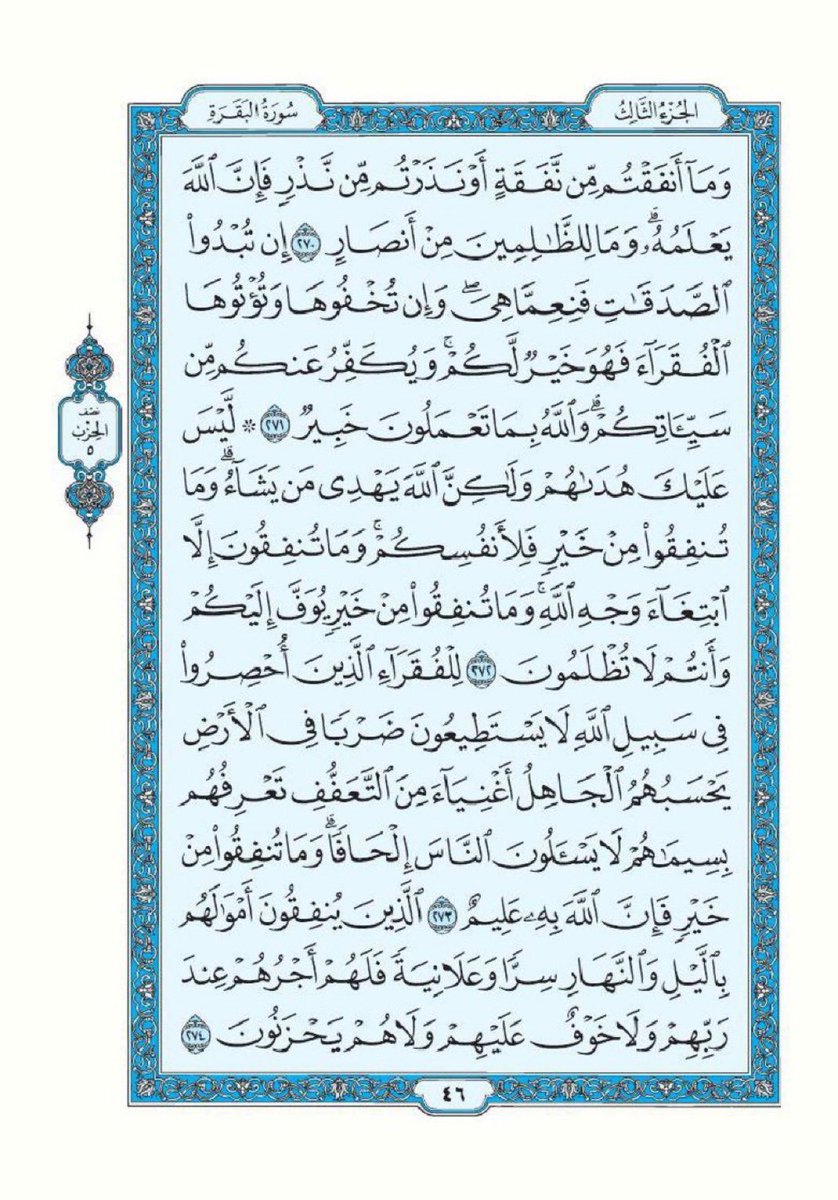 الجُزْءُ الثَّالِثُ
سُورَةُ البَقَرَةِ
وَمَآ أَنفَقْتُم مِّن نَّفَقَةٍ أَوْ نَذَرْتُم مِّن نَّذْرٍ فَإِنَّ ٱللَّهَ
يَعْلَمُهُۥۗ وَمَا لِلظَّٰلِمِينَ مِنْ أَنصَارٍ ٢٧٠ إِن تُبْدُوا۟
ٱلصَّدَقَٰتِ فَنِعِمَّا هِىَۖ وَإِن تُخْفُوهَا وَتُؤْتُوهَا
ٱلْفُقَرَآءَ فَهُوَ خَيْرٌ لَّكُمْۚ وَيُكَفِّرُ عَنكُم مِّن
سَيِّـَٔاتِكُمْۗ وَٱللَّهُ بِمَا تَعْمَلُونَ خَبِيرٌ ٢٧١ * لَّيْسَ
عَلَيْكَ هُدَىٰهُمْ وَلَٰكِنَّ ٱللَّهَ يَهْدِى مَن يَشَآءُۗ وَمَا
تُنفِقُوا۟ مِنْ خَيْرٍ فَلِأَنفُسِكُمْۚ وَمَا تُنفِقُونَ إِلَّا
ٱبْتِغَآءَ وَجْهِ ٱللَّهِۚ وَمَا تُنفِقُوا۟ مِنْ خَيْرٍ يُوَفَّ إِلَيْكُمْ
وَأَنتُمْ لَا تُظْلَمُونَ ٢٧٢ لِلْفُقَرَآءِ ٱلَّذِينَ أُحْصِرُوا۟
فِى سَبِيلِ ٱللَّهِ لَا يَسْتَطِيعُونَ ضَرْبًا فِى ٱلْأَرْضِ
يَحْسَبُهُمُ ٱلْجَاهِلُ أَغْنِيَآءَ مِنَ ٱلتَّعَفُّفِ تَعْرِفُهُم
بِسِيمَٰهُمْ لَا يَسْـَٔلُونَ ٱلنَّاسَ إِلْحَافًاۗ وَمَا تُنفِقُوا۟ مِنْ
خَيْرٍ فَإِنَّ ٱللَّهَ بِهِۦ عَلِيمٌ ٢٧٣ ٱلَّذِينَ يُنفِقُونَ أَمْوَٰلَهُم
بِٱلَّيْلِ وَٱلنَّهَارِ سِرًّا وَعَلَانِيَةً فَلَهُمْ أَجْرُهُمْ عِندَ
رَبِّهِمْ وَلَا خَوْفٌ عَلَيْهِمْ وَلَا هُمْ يَحْزَنُونَ ٢٧٤
نصف
الحِزْب
٥
٤٦